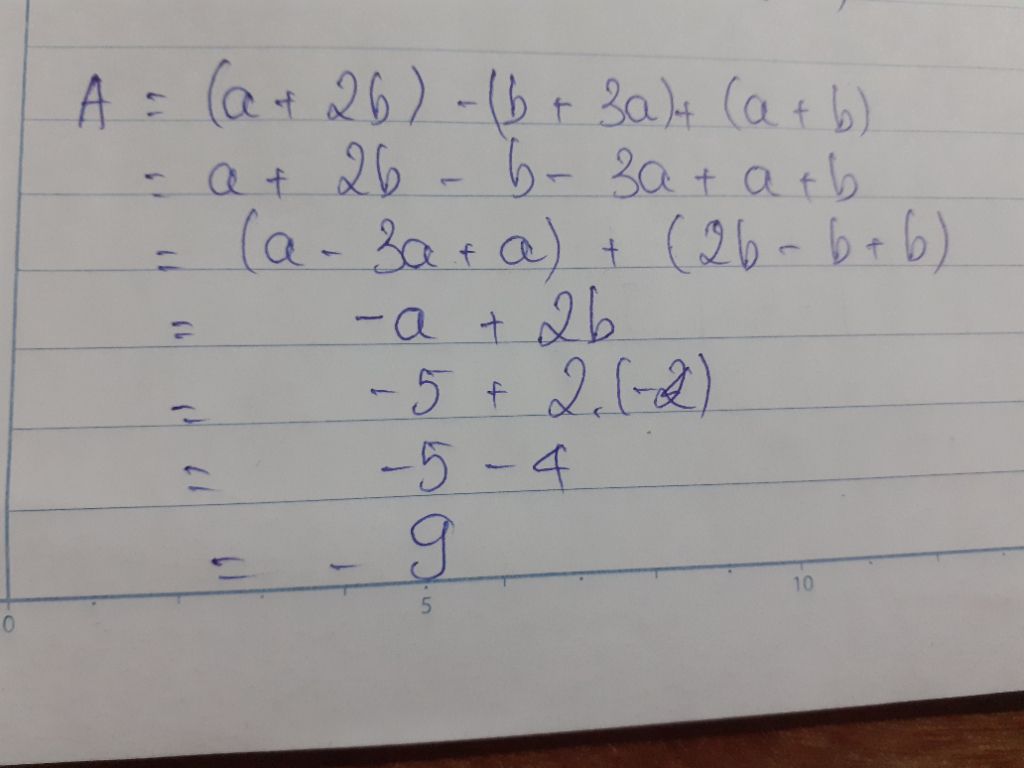 A = (a + 2b) - (b + 3a) + (a + b)
= a + 2b - b - 3a + a + b
= (a - 3a + a) + (2b - b + b)
= -a + 2b
= -5 + 2.(-2)
= -5 - 4
= - 9
0 5 10